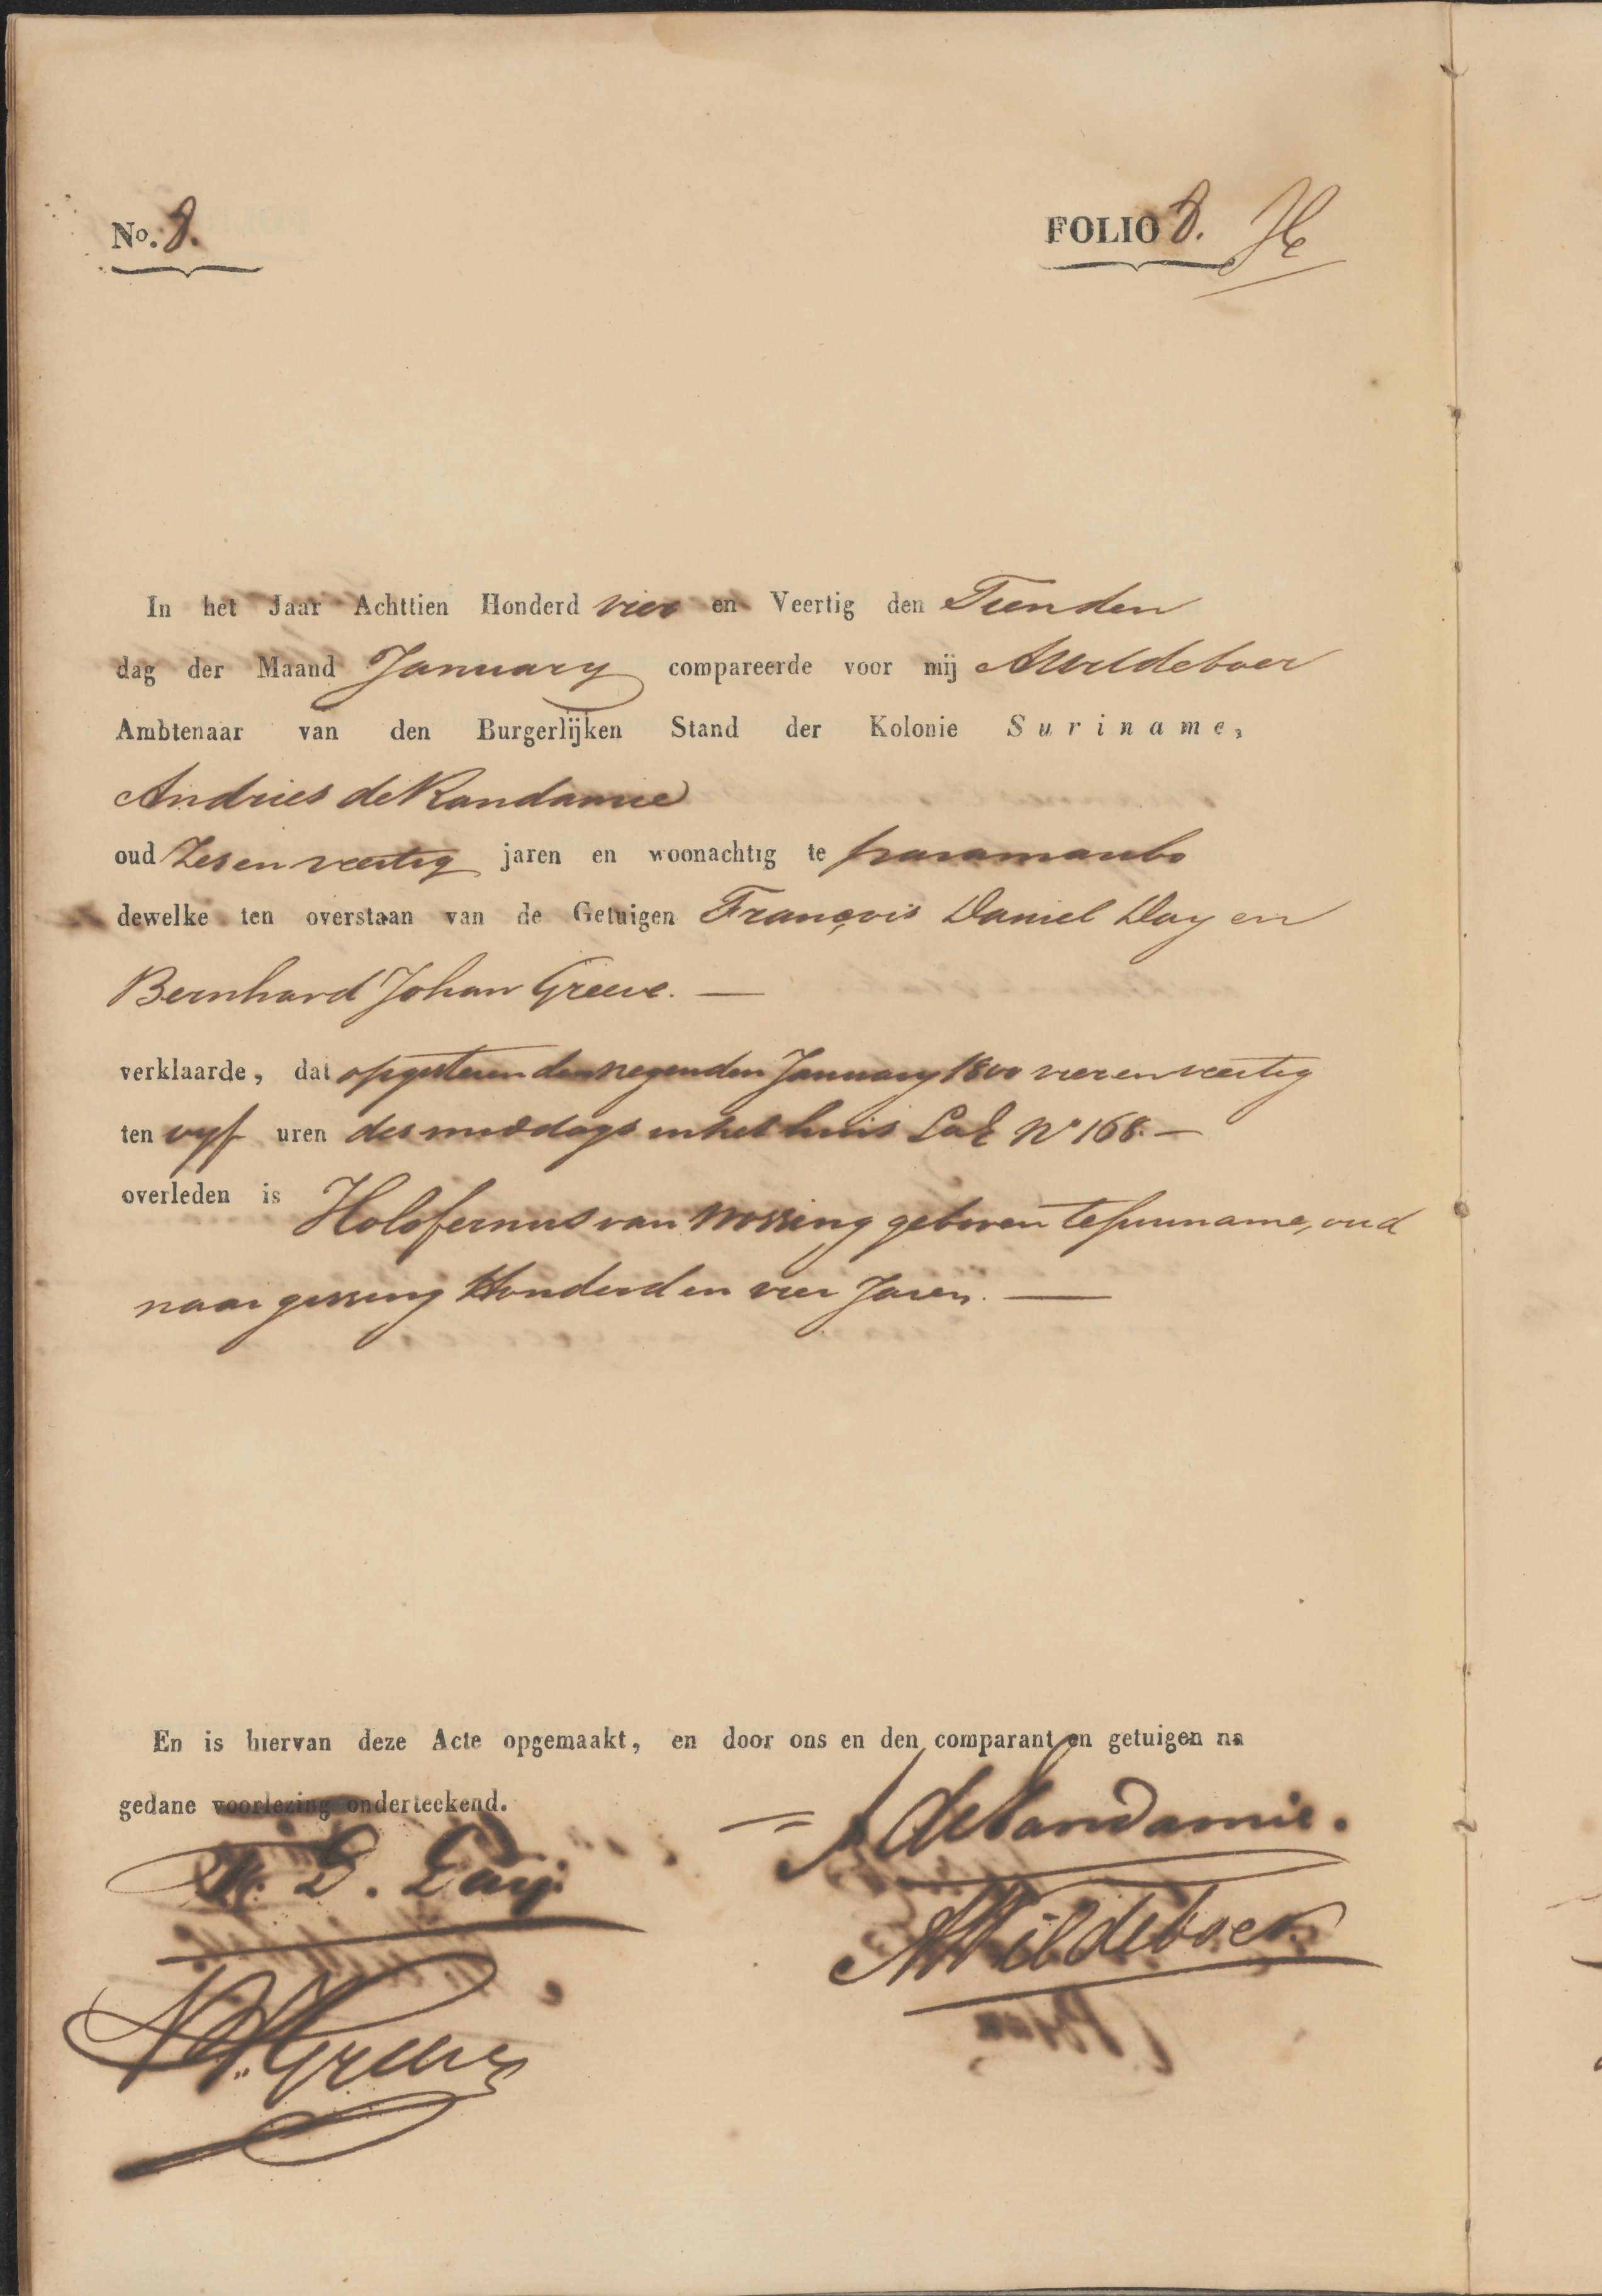 No. 8.
FOLIO 8. H
In het Jaar Achttien Honderd vier en Veertig den Tienden
dag der Maand January compareerde voor mij AWildeboer
Ambtenaar van den Burgerlijken Stand der Kolonie Suriname,
Andries de Randamie
oud Zes en veertig jaren en woonachtig te paramaribo
dewelke ten overstaan van de Getuigen François Daniel Day en
Bernhard Johan Greeve. —
verklaarde, dat op gisteren den negenden January 1800 vier en veertig
ten vyf uren des middags in het huis La E No 168. —
overleden is Holofernus van Mossing geboren te suriname, oud
naar gissing Honderd en vier Jaren. —
En is hiervan deze Acte opgemaakt, en door ons en den comparant en getuigen na
gedane voorlezing onderteekend.
A de Randamie.
F. D. Day.
AWildeboer
B J Greeve